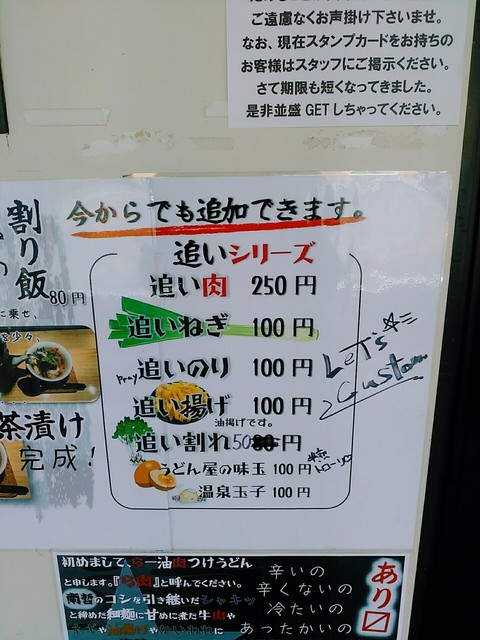 ご遠慮なくお声掛け下さいませ。
なお、現在スタンプカードをお持ちの
お客様はスタッフにご掲示ください。
さて期限も短くなってきました。
是非並盛 GETしちゃってください。
割り飯
80円
に乗せ、
を少々、
茶漬け
完成！
今からでも追加できます。
追いシリーズ
追い肉 250円
追いねぎ 100円
追いのり 100円
追い揚げ 100円
油揚げです。
追い割れ50円
うどん屋の味玉 100円
温泉玉子 100円
LeT's
Custom
初めまして
一油肉つけうどん
と申します。
と呼んでください。
のコシを引き継いだ
と締めた細麺に甘めに煮た牛肉や
辛いの
辛くないの
冷たいの
あったかいの
あり〼